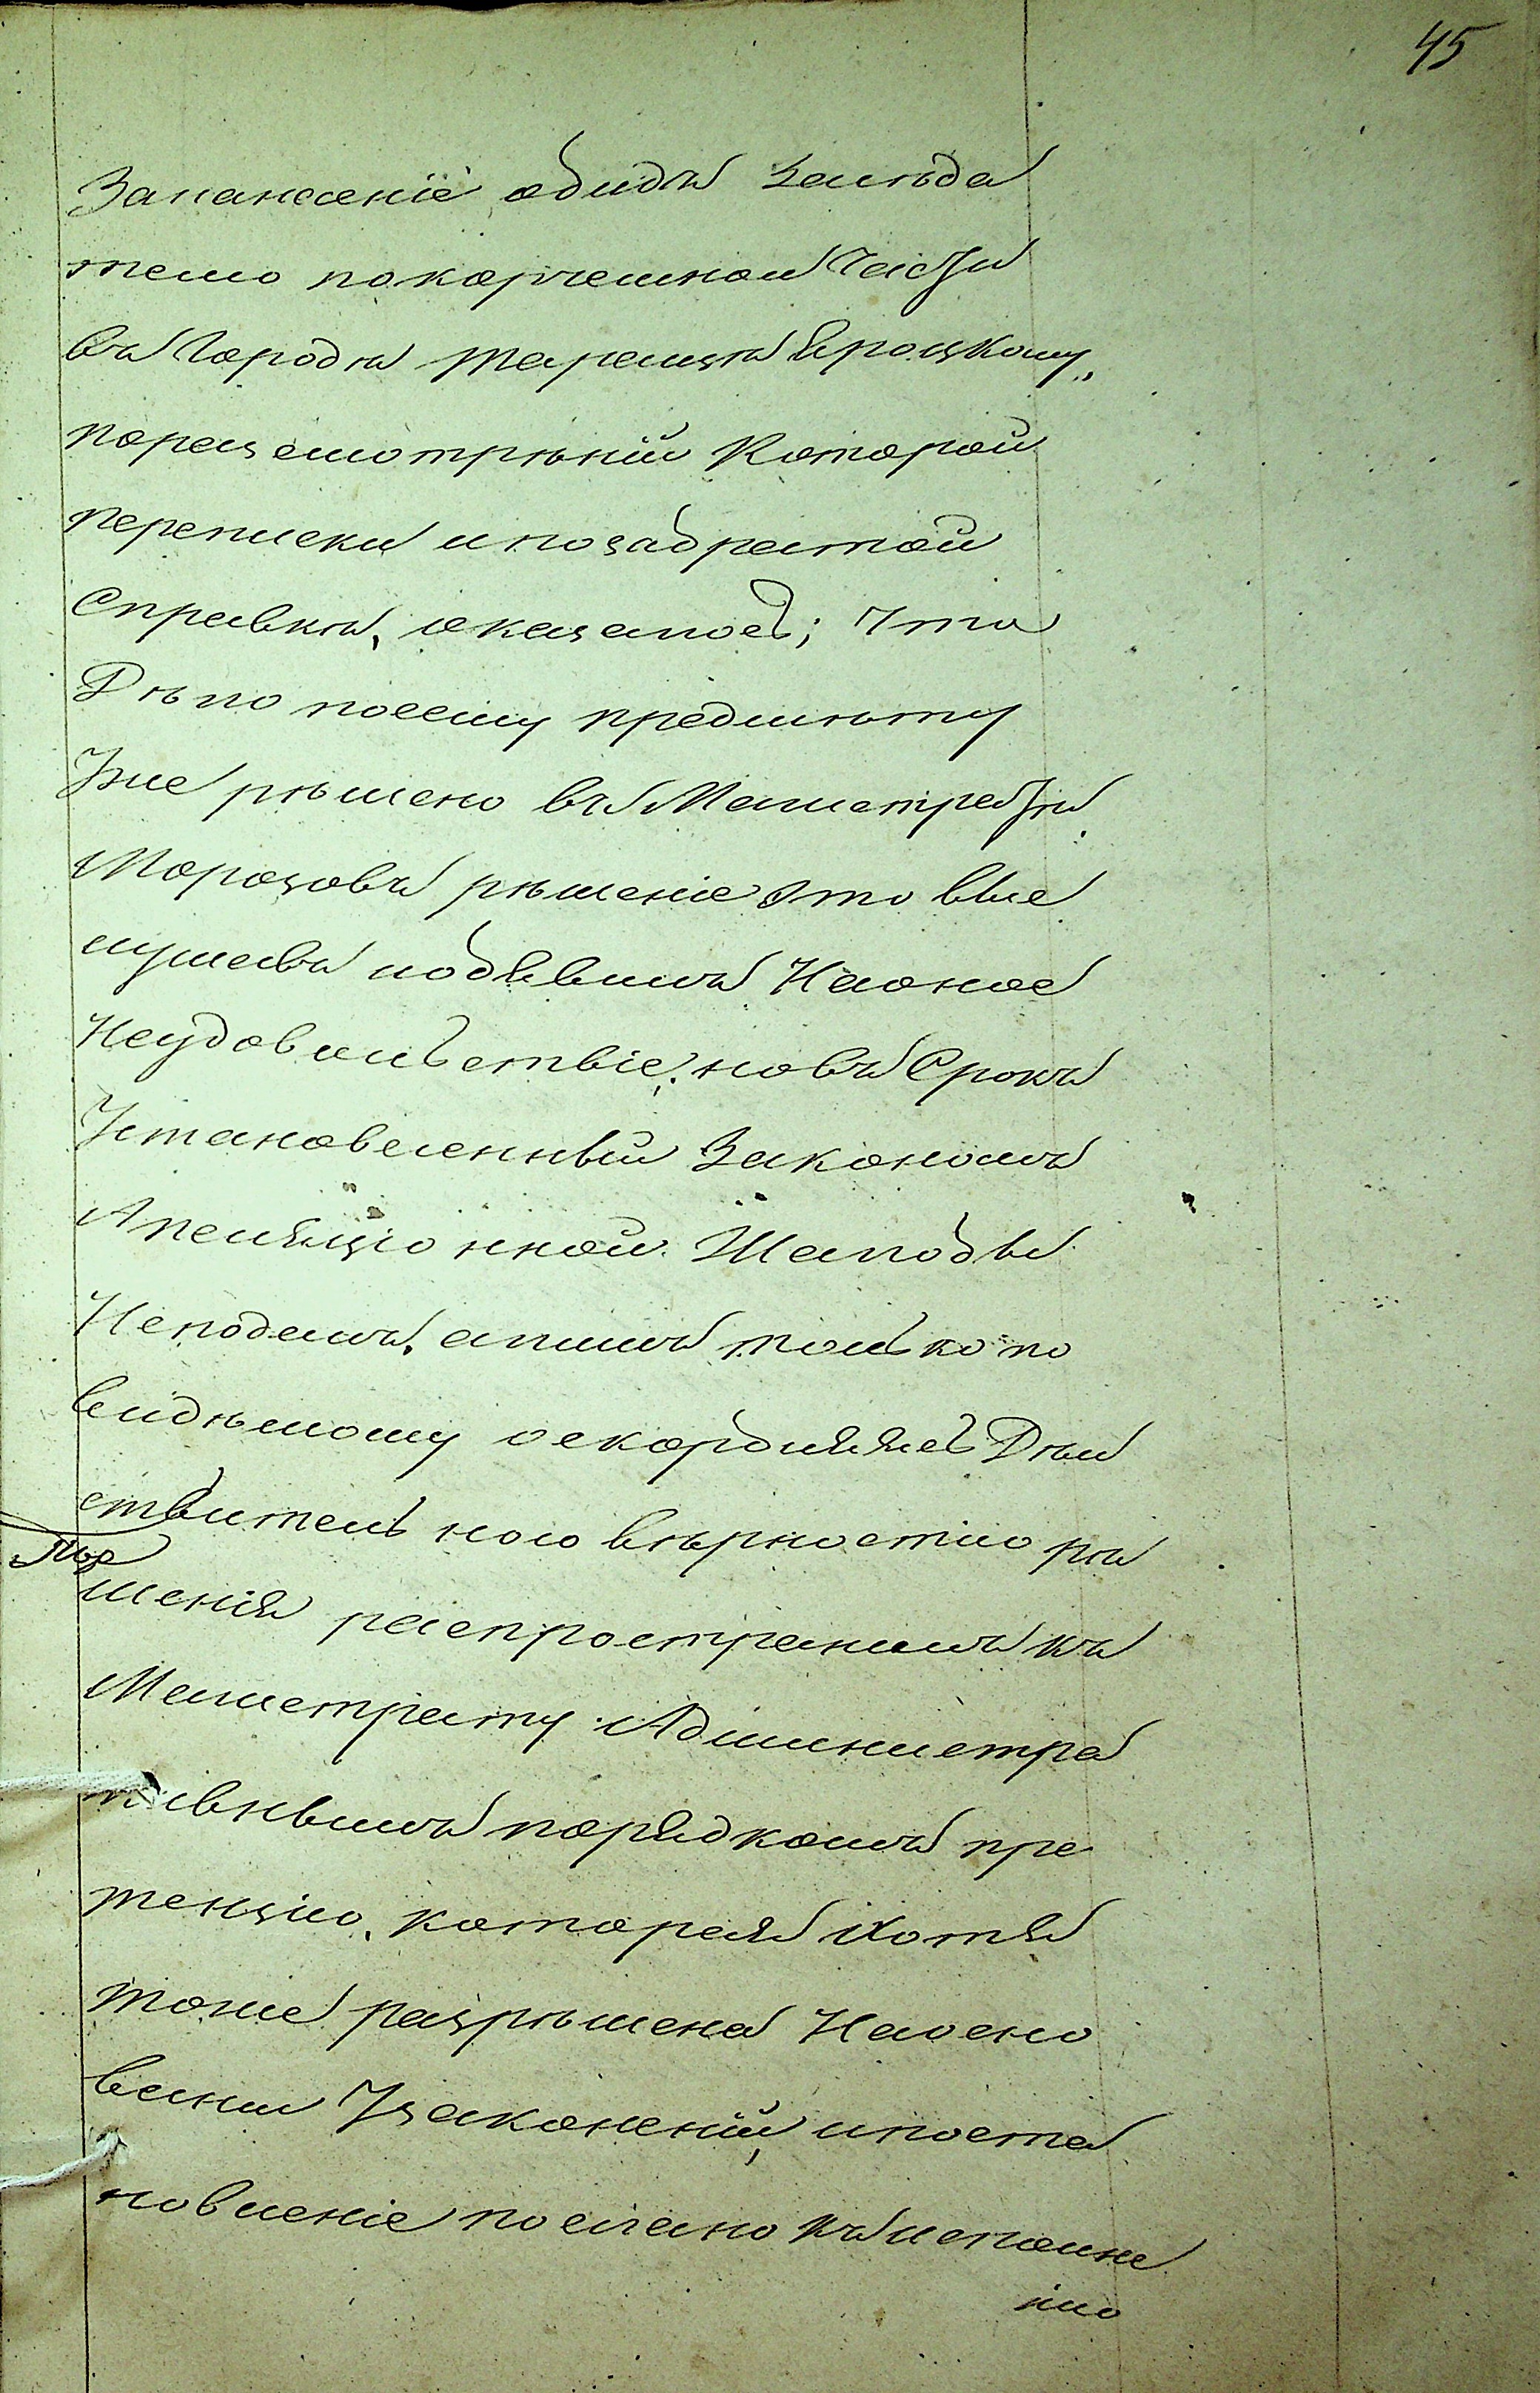 45
Зананесеніе обидъ Заседа
телю покорчемной Части
въ Городѣ Таращѣ Яроцкому,
поразсмотрѣніи Которой
переписки ипозабратой
Справки, оказалось; Что
Дѣло посему предмѣту
Уже рѣшено въ Магистратѣ
Морозовъ рѣшеніе это вы
слушавъ изъявилъ Наоное
Неудовольствіе, новъ Срокъ
Установленный Закономъ
Апеляціонной Жалобы
Неподалъ, алишъ только по
видѣмому оскорбляясь Дѣй
ствительною вѣрностію рѣ
шенія распространилъ къ
Магистрату Администра
тивнымъ порядкомъ пре
тензію, которая Хотя
тоже разрѣшена Наосно
ваніи Узаконеній, ипоста
новленіе послано къ исполне
нію